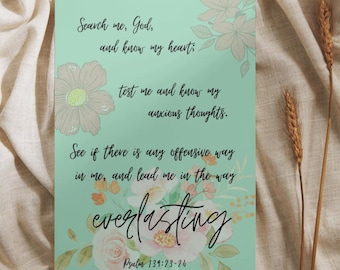 Search me, God,
and know my heart;
test me and know my
anxious thoughts.
See if there is any offensive way
in me, and lead me in the way
everlasting
Psalm 139:23-24